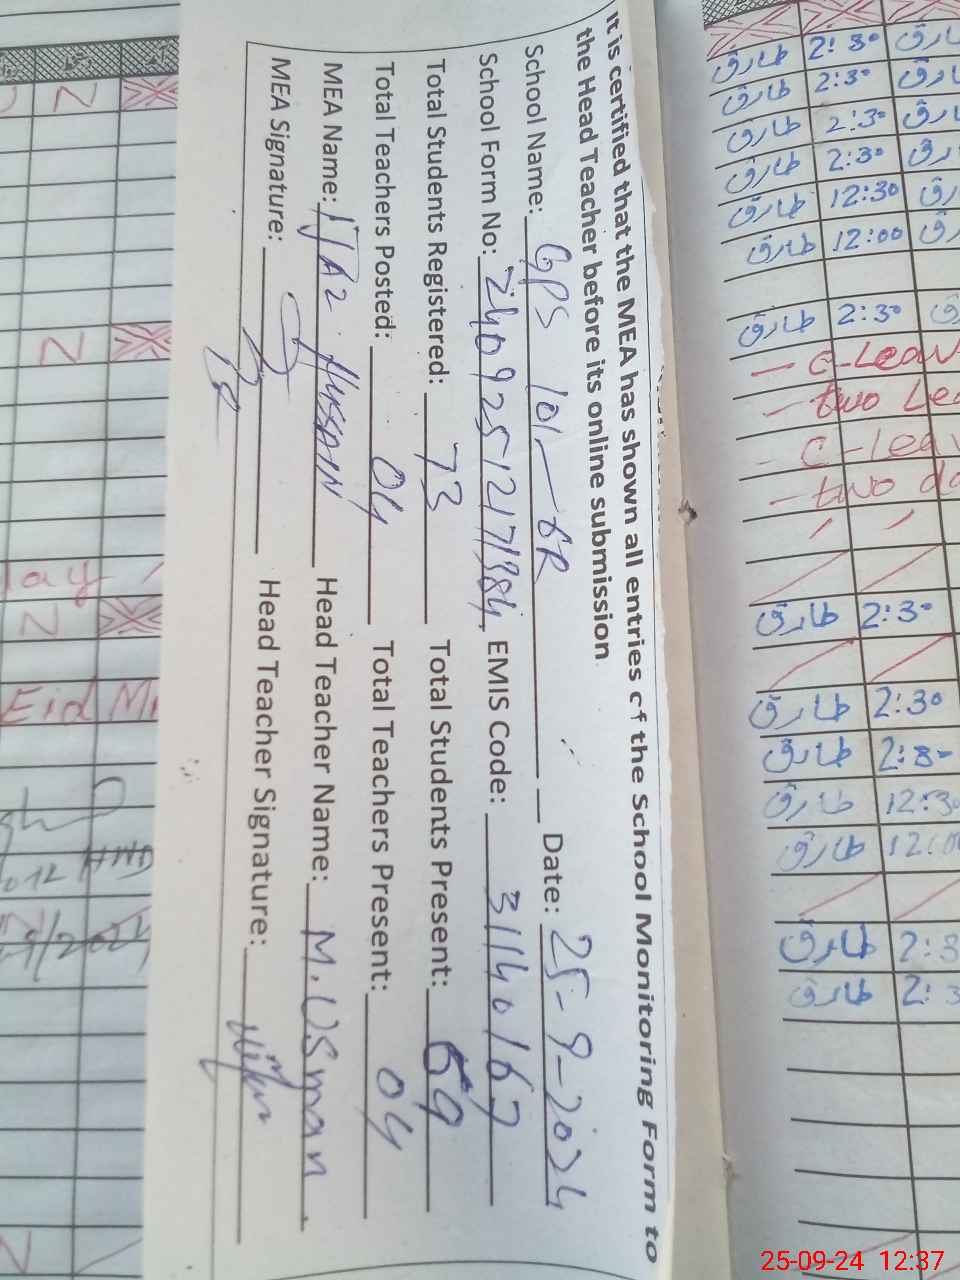 It is certified that the MEA has shown all entries of the School Monitoring Form to
the Head Teacher before its online submission
School Name: GPS 101-6R Date: 25-9-2024
School Form No: 24092512171984 EMIS Code: 31140167
Total Students Registered: 73 Total Students Present: 69
Total Teachers Posted: 04 Total Teachers Present: 04
MEA Name: IJAZ HUSSAIN Head Teacher Name: M. Usman
MEA Signature: Head Teacher Signature:
طارق 2:30
طارق 2:30
طارق 2:30
طارق 2:30
طارق 12:30
طارق 12:00
طارق 2:30
- C-Leav
- two Lea
- C-leav
- two da
طارق 2:30
طارق 2:30
طارق 2:30
طارق 12:30
طارق 12:00
طارق 2:3
طارق 2:3
N
N
lay
N
Eid Mi
25-09-24 12:37